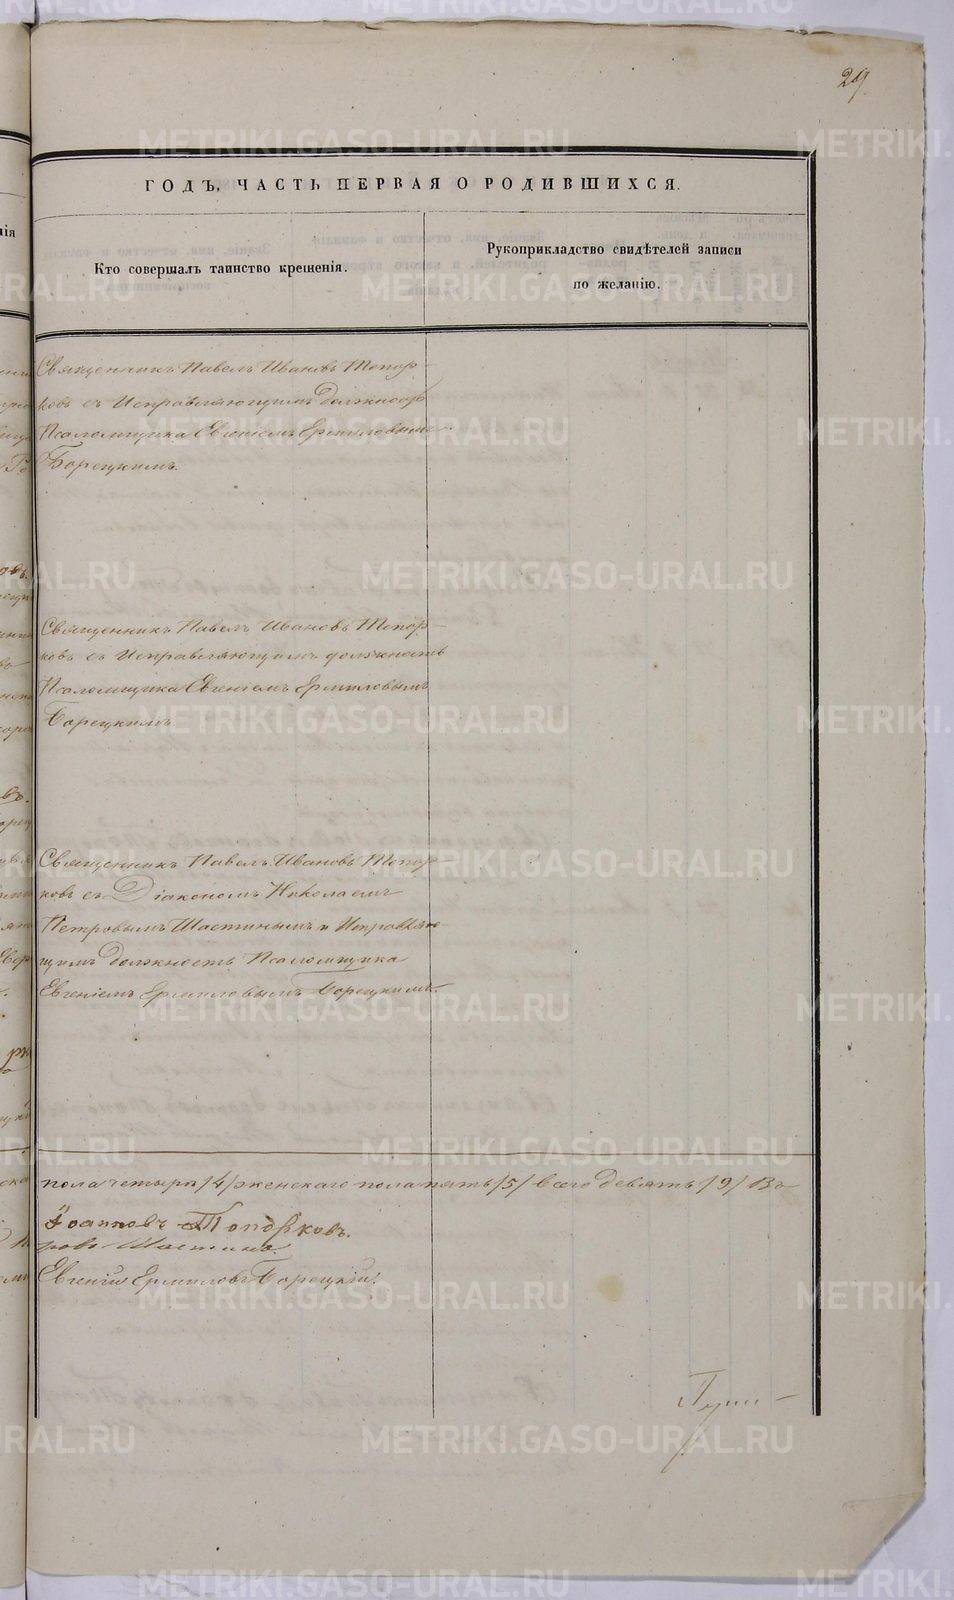 29.
ГОДЪ, ЧАСТЬ ПЕРВАЯ О РОДИВШИХСЯ.
Кто совершалъ таинство крещенія.
Рукоприкладство свидѣтелей записи
по желанію.
Священникъ Павелъ Ивановъ Топор-
ковъ съ Исправляющимъ должность
Псаломщика Евгеніемъ Ермиловымъ
Борецкимъ.
Священникъ Павелъ Ивановъ Топор-
ковъ съ Исправляющимъ должность
Псаломщика Евгеніемъ Ермиловымъ
Борецкимъ.
Священникъ Павелъ Ивановъ Топор-
ковъ съ Діакономъ Николаемъ
Петровымъ Шастинымъ и Исправляю-
щимъ должность Псаломщика
Евгеніемъ Ермиловымъ Борецкимъ.
пола четыре /4/ женскаго пола пять /5/ всего девять /9/ Въ
Іоанновъ Топорковъ.
ровъ Шастинъ.
Евгеній Ермиловъ Борецкій.
METRIKI.GASO-URAL.RU